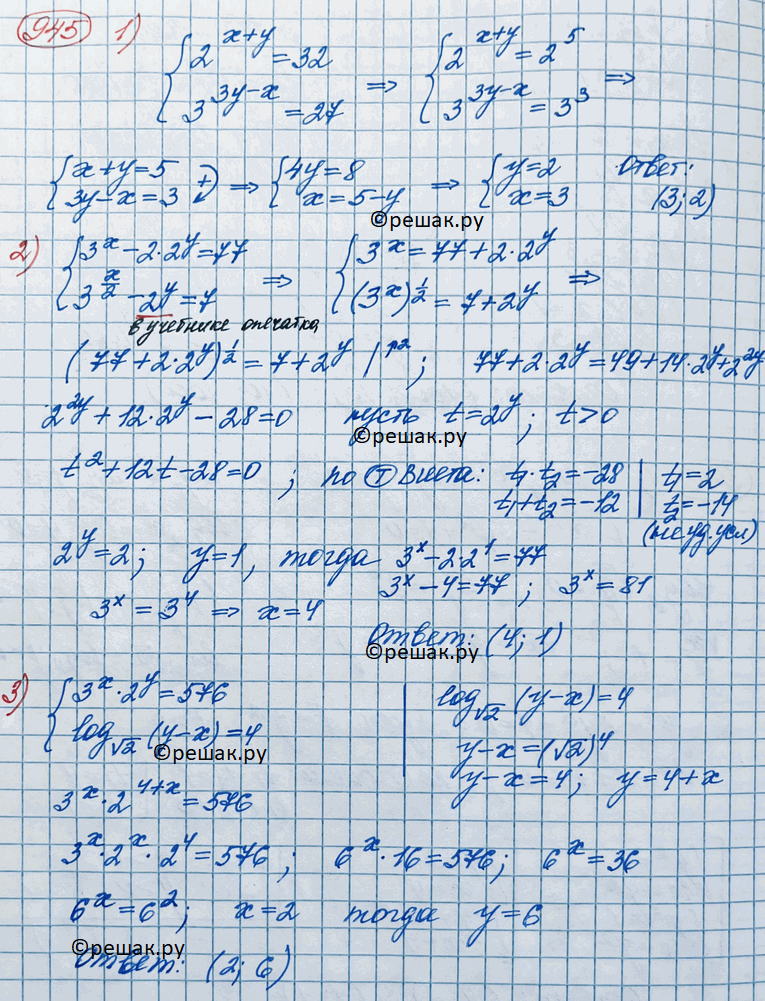 945 1) { 2^{x+y} = 32 ⇒ { 2^{x+y} = 2^5 ⇒
3^{3y-x} = 27 3^{3y-x} = 3^3
{ x+y=5 (+) ⇒ { 4y=8 ⇒ { y=2 Ответ:
3y-x=3 x=5-y x=3 (3; 2)
©решак.ру
2) { 3^x - 2·2^y = 77 ⇒ { 3^x = 77+2·2^y ⇒
3^{x/2} - 2^y = 7 (3^x)^{1/2} = 7+2^y
в учебнике опечатка
(77+2·2^y)^{1/2} = 7+2^y |^2 ; 77+2·2^y = 49+14·2^y+2^{2y}
2^{2y}+12·2^y - 28=0 пусть t=2^y; t>0
©решак.ру
t^2+12t-28=0 ; по Т Виета: t₁·t₂=-28 | t₁=2
t₁+t₂=-12 | t₂=-14
(не уд. усл)
2^y=2; y=1, тогда 3^x-2·2^1=77
3^x-4=77; 3^x=81
3^x = 3^4 ⇒ x=4
Ответ: (4; 1)
©решак.ру
3) { 3^x·2^y=576 | log_{√2}(y-x)=4
log_{√2}(y-x)=4 | y-x=(√2)^4
©решак.ру
y-x=4; y=4+x
3^x·2^{4+x}=576
3^x·2^x·2^4=576; 6^x·16=576; 6^x=36
6^x=6^2; x=2 тогда y=6
©решак.ру
Ответ: (2; 6)